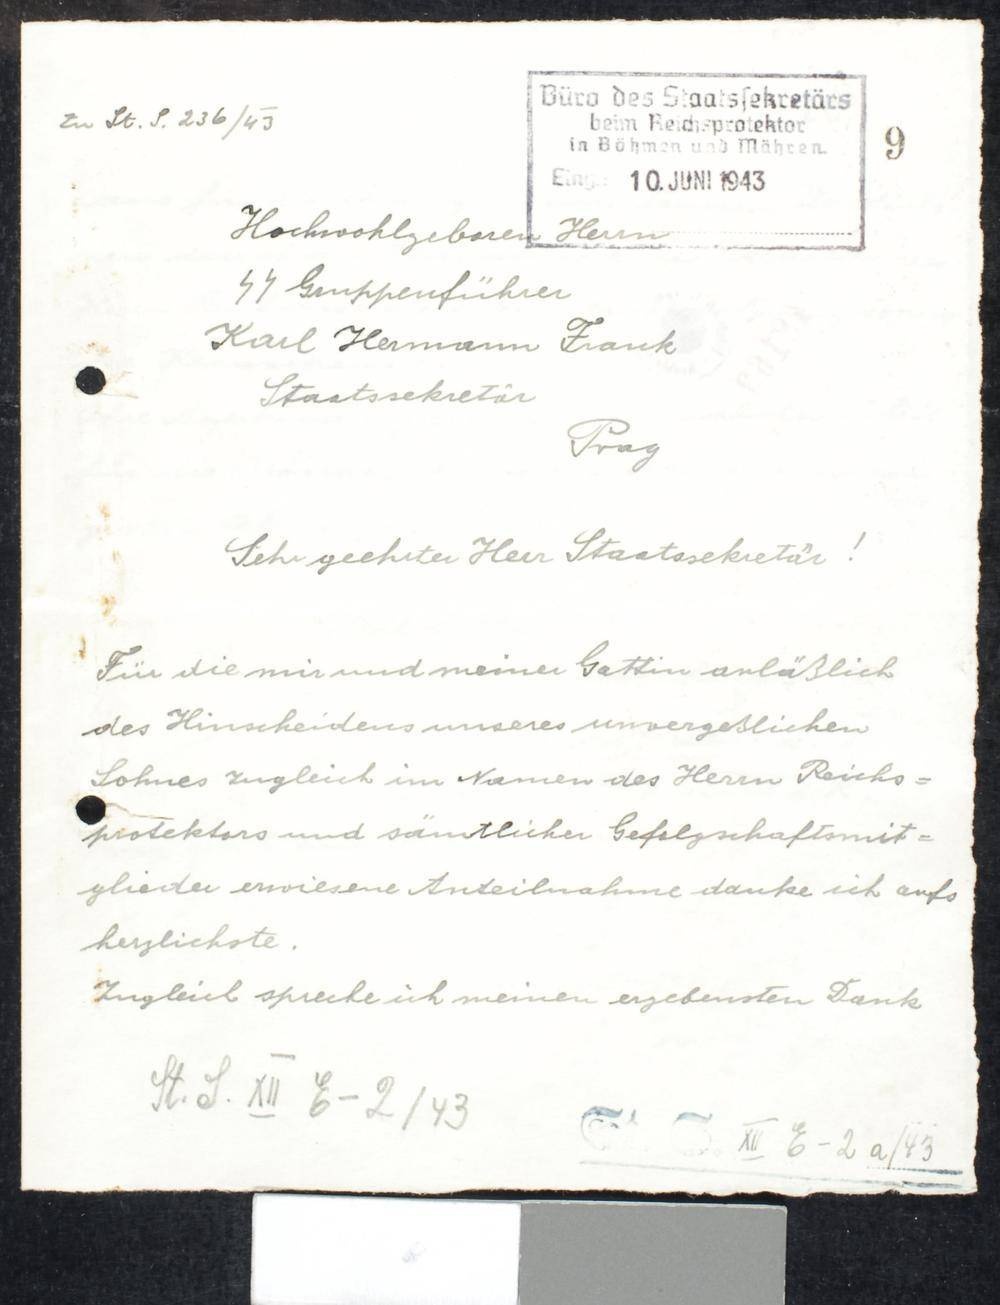 zu St. S. 236/43
Büro des Staatssekretärs
beim Reichsprotektor
in Böhmen und Mähren.
Eing.: 10. JUNI 1943
9
Hochwohlgeboren Herrn
SS Gruppenführer
Karl Hermann Frank
Staatssekretär
Prag
Sehr geehrter Herr Staatssekretär !
Für die mir und meiner Gattin anläßlich
des Hinscheidens unseres unvergeßlichen
Sohnes zugleich im Namen des Herrn Reichs=
protektors und sämtlicher Gefolgschaftsmit=
glieder erwiesene Anteilnahme danke ich aufs
herzlichste.
Zugleich spreche ich meinen ergebensten Dank
St. S. XII E-2/43
St. S. XII E-2a/43